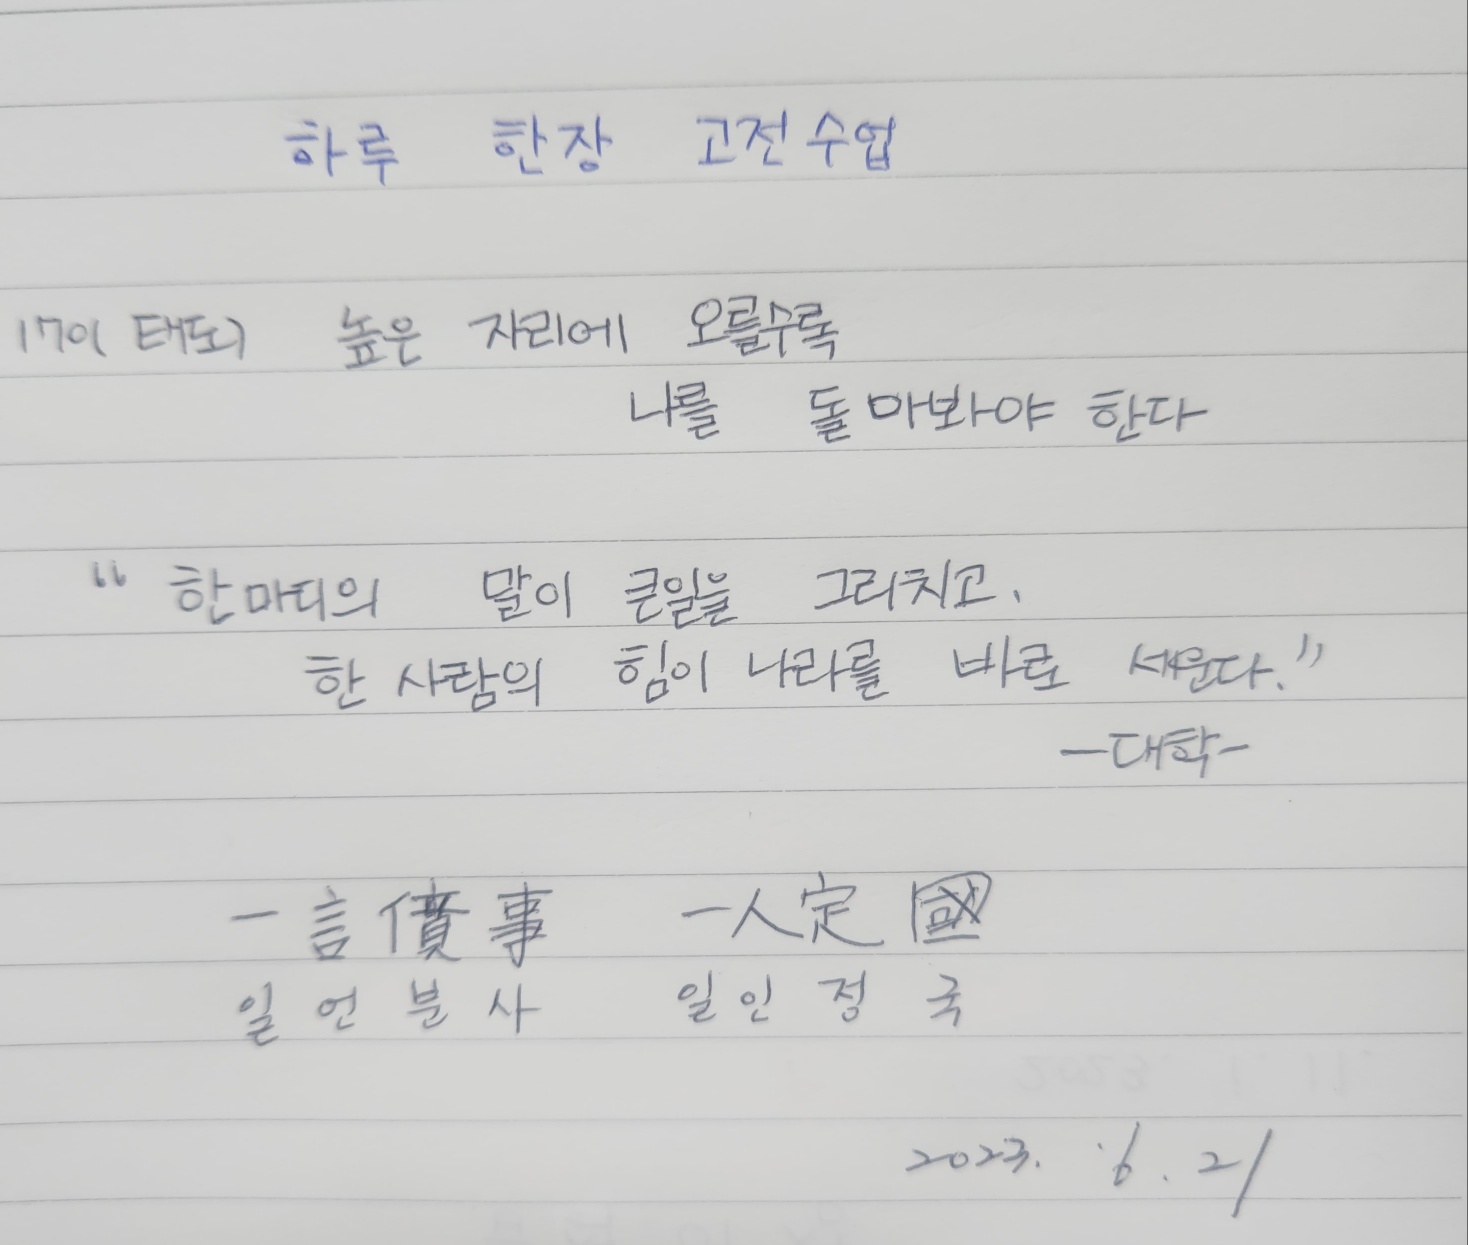 하루 한장 고전수업
170( 태도) 높은 자리에 오를수록
나를 돌아봐야 한다
“ 한마디의 말이 큰일을 그르치고,
한 사람의 힘이 나라를 바로 세운다.”
-대학-
一言僨事 一人定國
일언분사 일인정국
2023. 6. 21